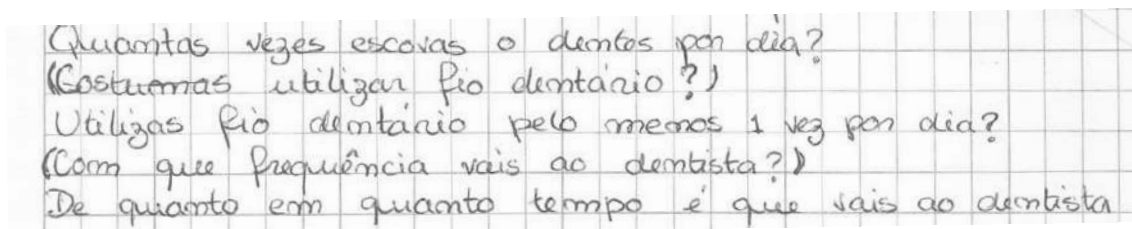 Quantas vezes escovas o dentes por dia?
(Costumas utilizar fio dentário?)
Utilizas fio dentário pelo menos 1 vez por dia?
(Com que frequência vais ao dentista?)
De quanto em quanto tempo é que vais ao dentista